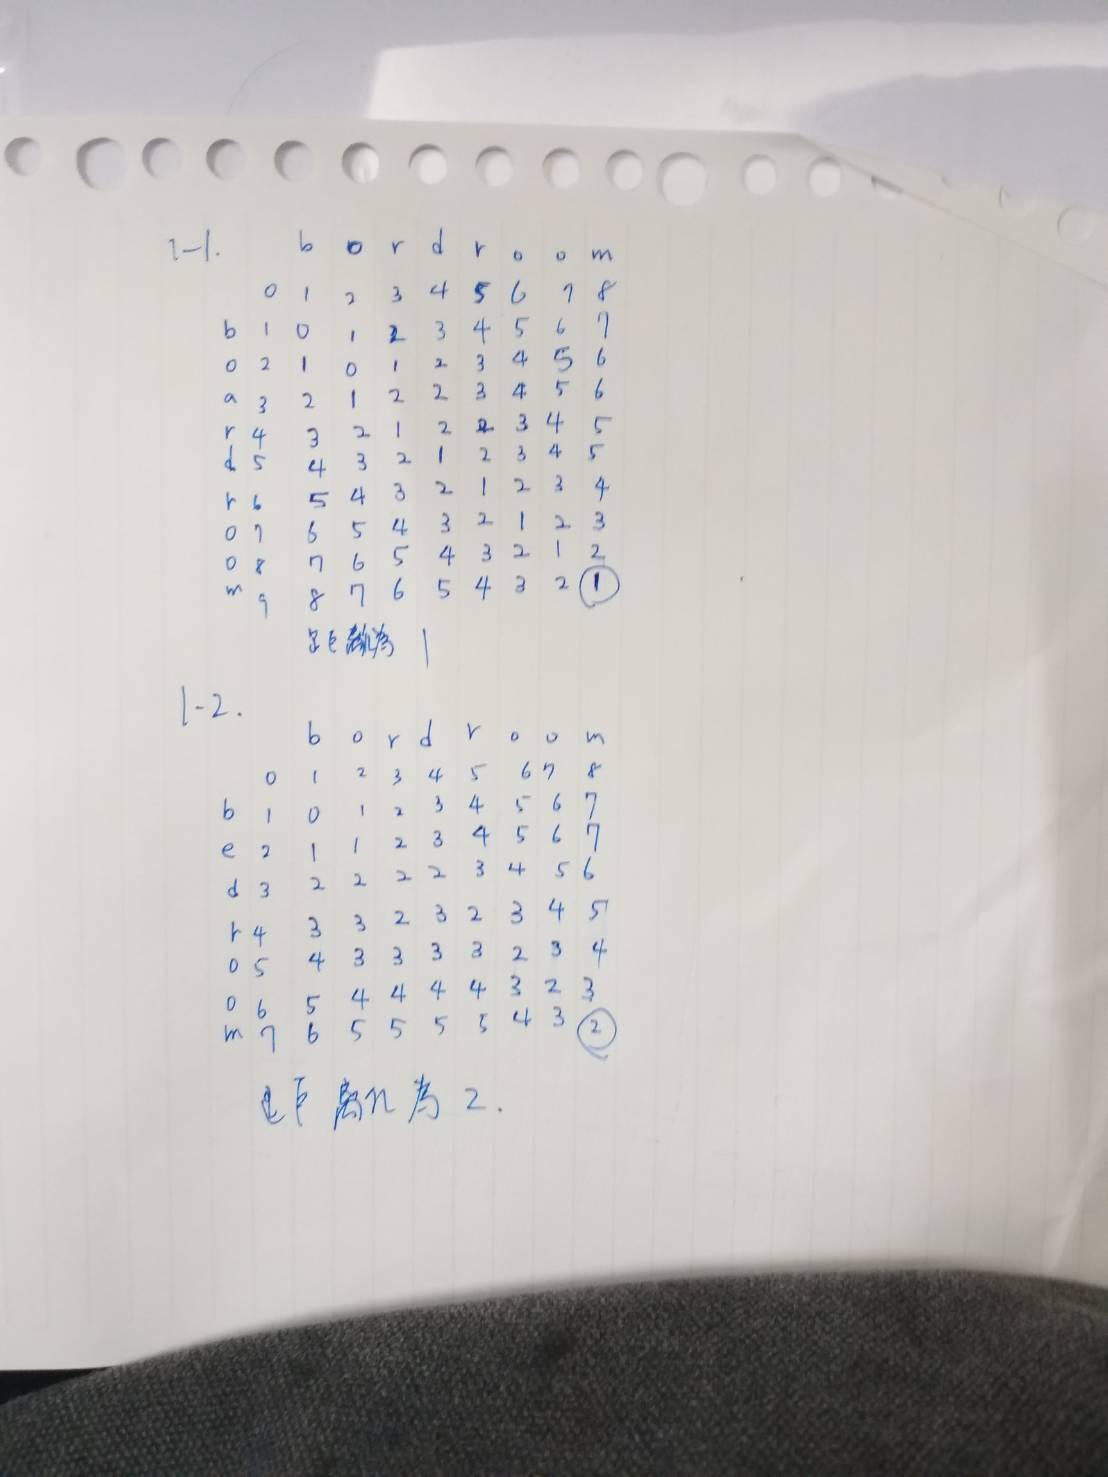 1-1. b o r d r o o m
0 1 2 3 4 5 6 7 8
b 1 0 1 2 3 4 5 6 7
o 2 1 0 1 2 3 4 5 6
a 3 2 1 2 2 3 4 5 6
r 4 3 2 1 2 2 3 4 5
d 5 4 3 2 1 2 3 4 5
r 6 5 4 3 2 1 2 3 4
o 7 6 5 4 3 2 1 2 3
o 8 7 6 5 4 3 2 1 2
m 9 8 7 6 5 4 3 2 1
距離為 1
1-2.
b o r d r o o m
0 1 2 3 4 5 6 7 8
b 1 0 1 2 3 4 5 6 7
e 2 1 1 2 3 4 5 6 7
d 3 2 2 2 2 3 4 5 6
r 4 3 3 2 3 2 3 4 5
o 5 4 3 3 3 3 2 3 4
o 6 5 4 4 4 4 3 2 3
m 7 6 5 5 5 5 4 3 2
距離為 2.